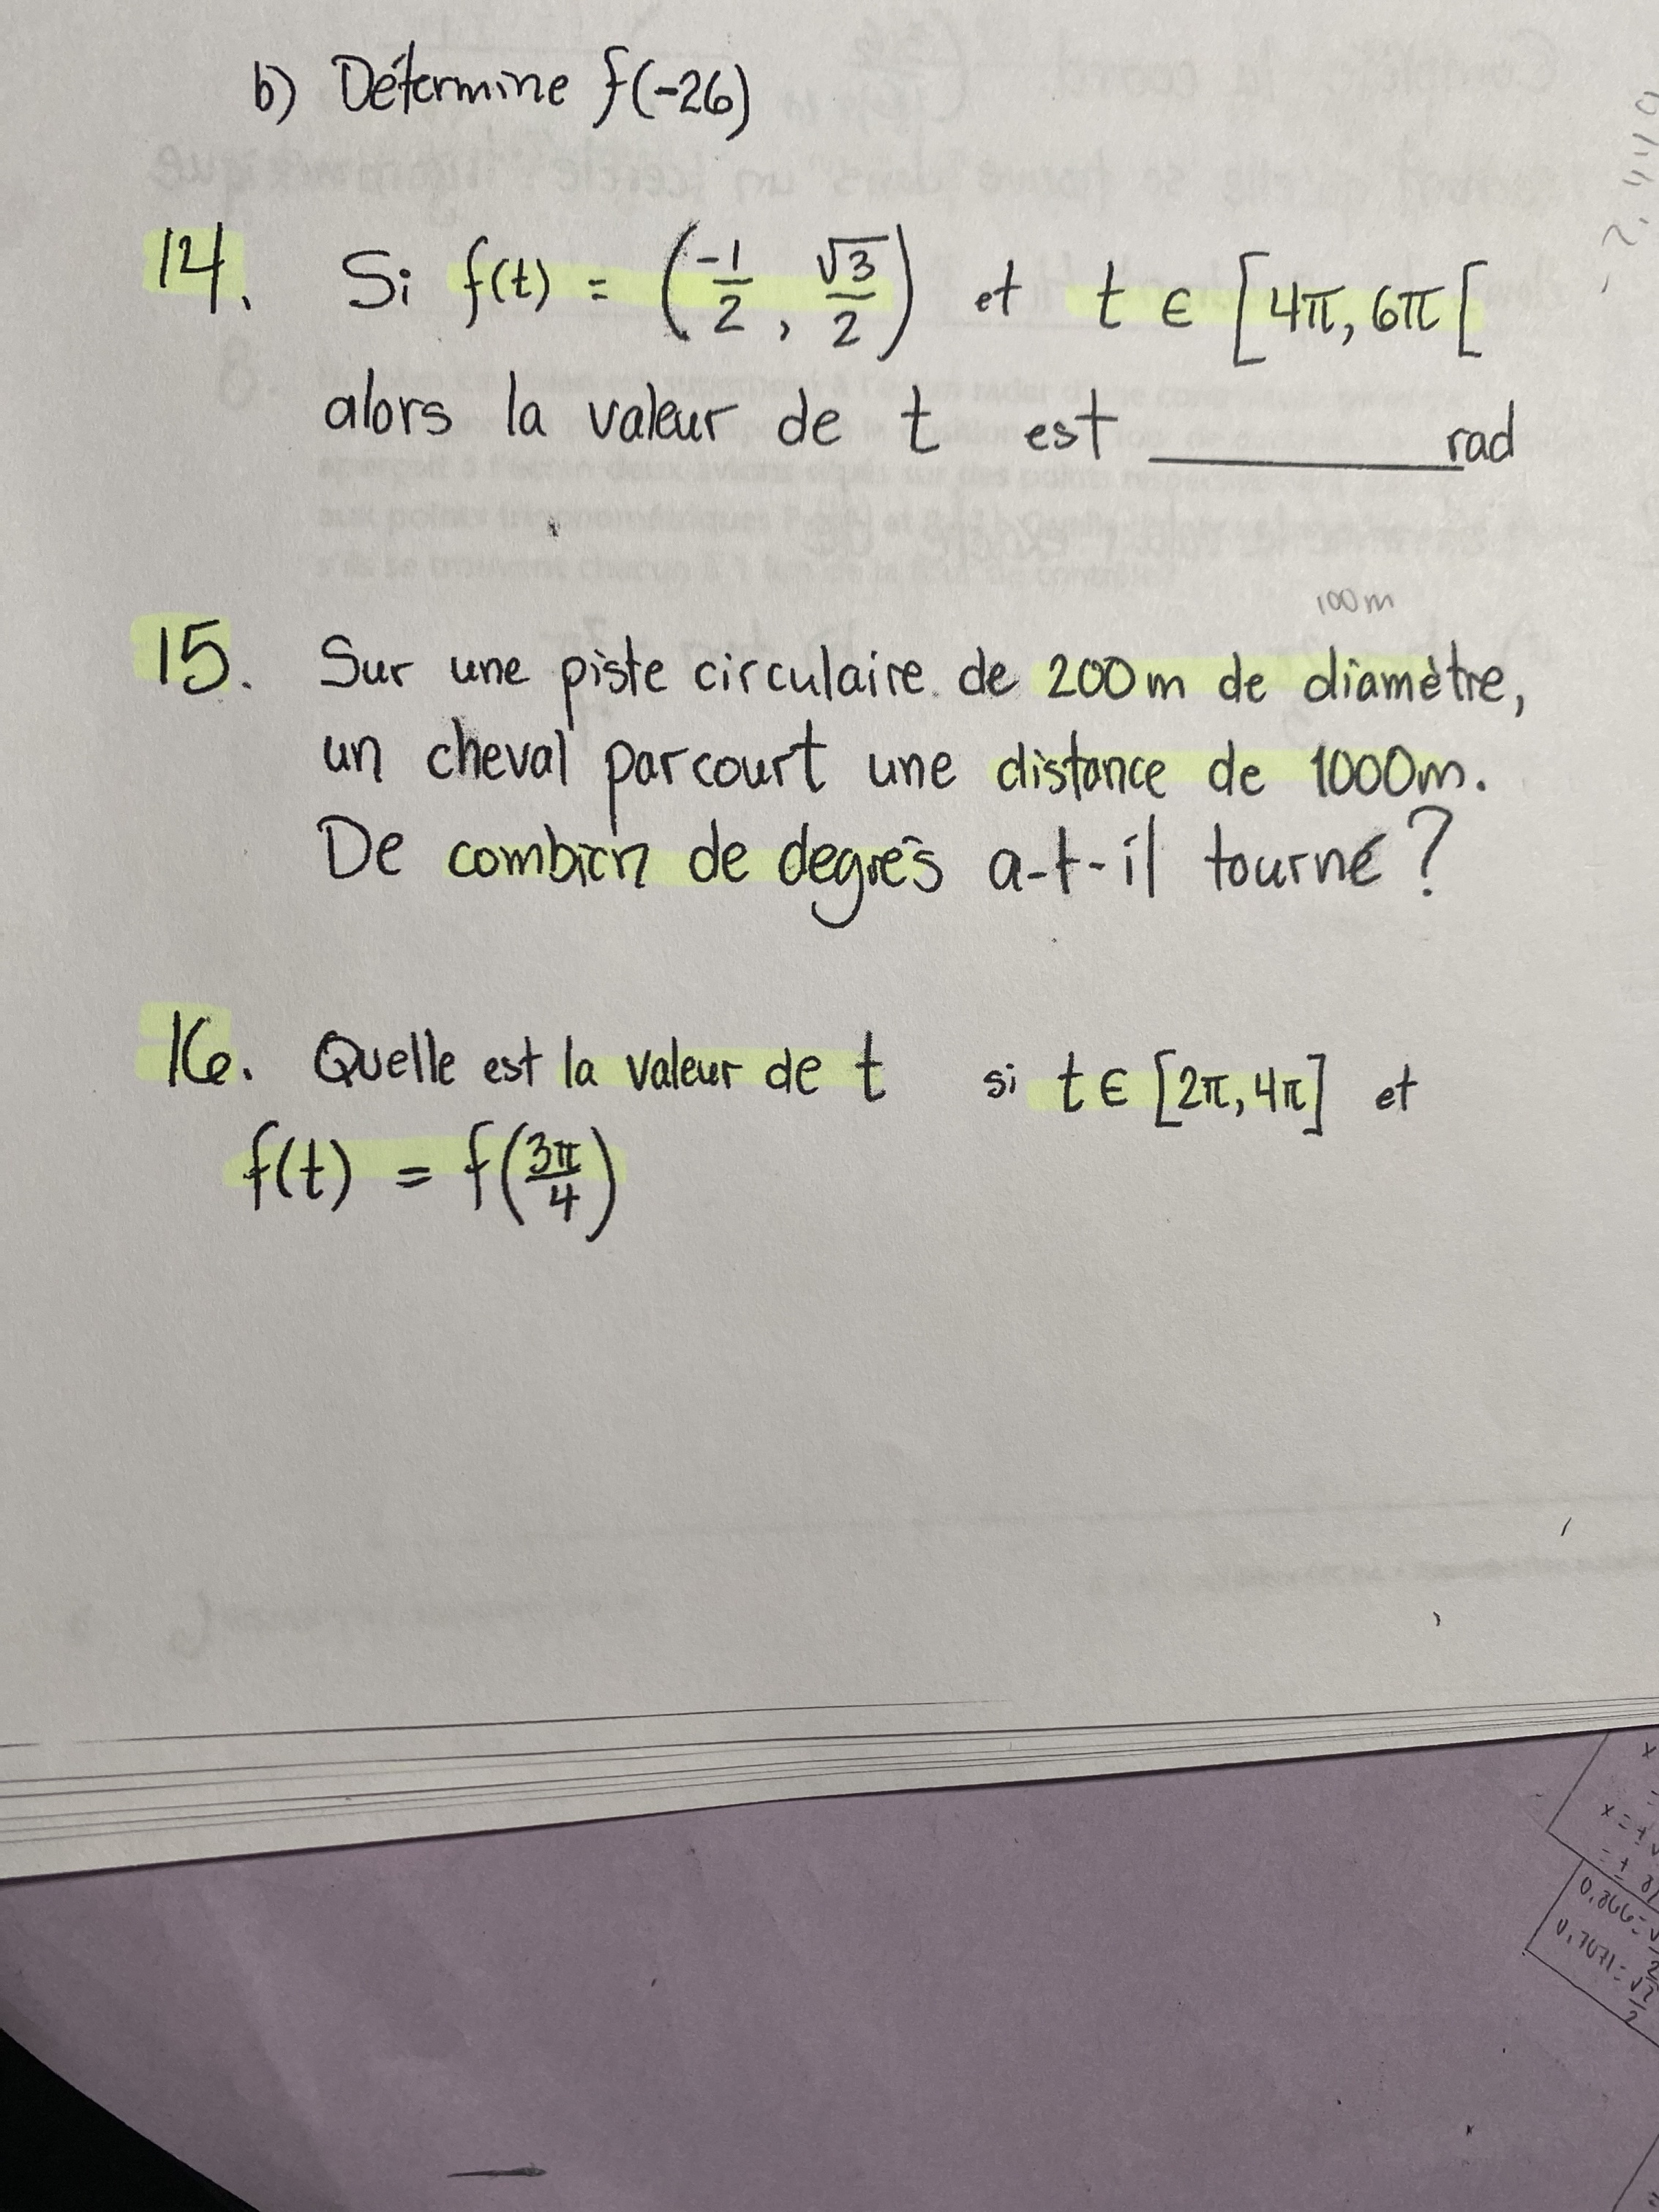 b) Détermine f(-26)
14. Si f(t) = (-1/2, √3/2) et t ∈ [4π, 6π[
alors la valeur de t est ________ rad
100m
15. Sur une piste circulaire de 200m de diamètre,
un cheval parcourt une distance de 1000m.
De combien de degrés a-t-il tourné ?
16. Quelle est la valeur de t si t ∈ [2π, 4π] et
f(t) = f(3π/4)